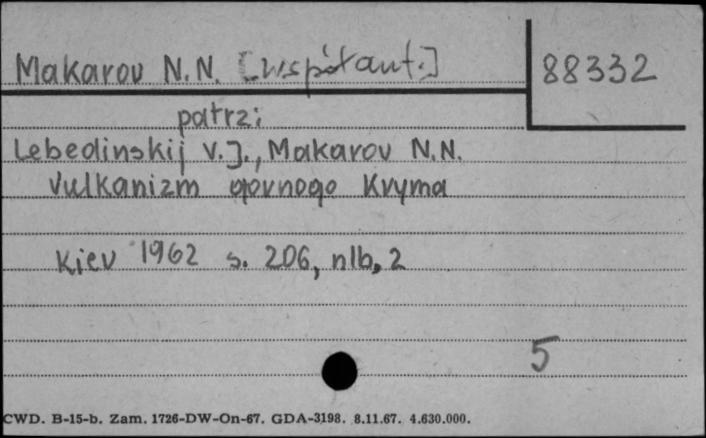 Makarov N.N. [współaut.] 88332
patrz:
Lebedinskij V.J., Makarov N.N.
Vulkanizm gornogo Kryma
Kiev 1962 s. 206, nlb, 2
5
CWD. B-15-b. Zam. 1726-DW-On-67. GDA-3198. 8.11.67. 4.630.000.